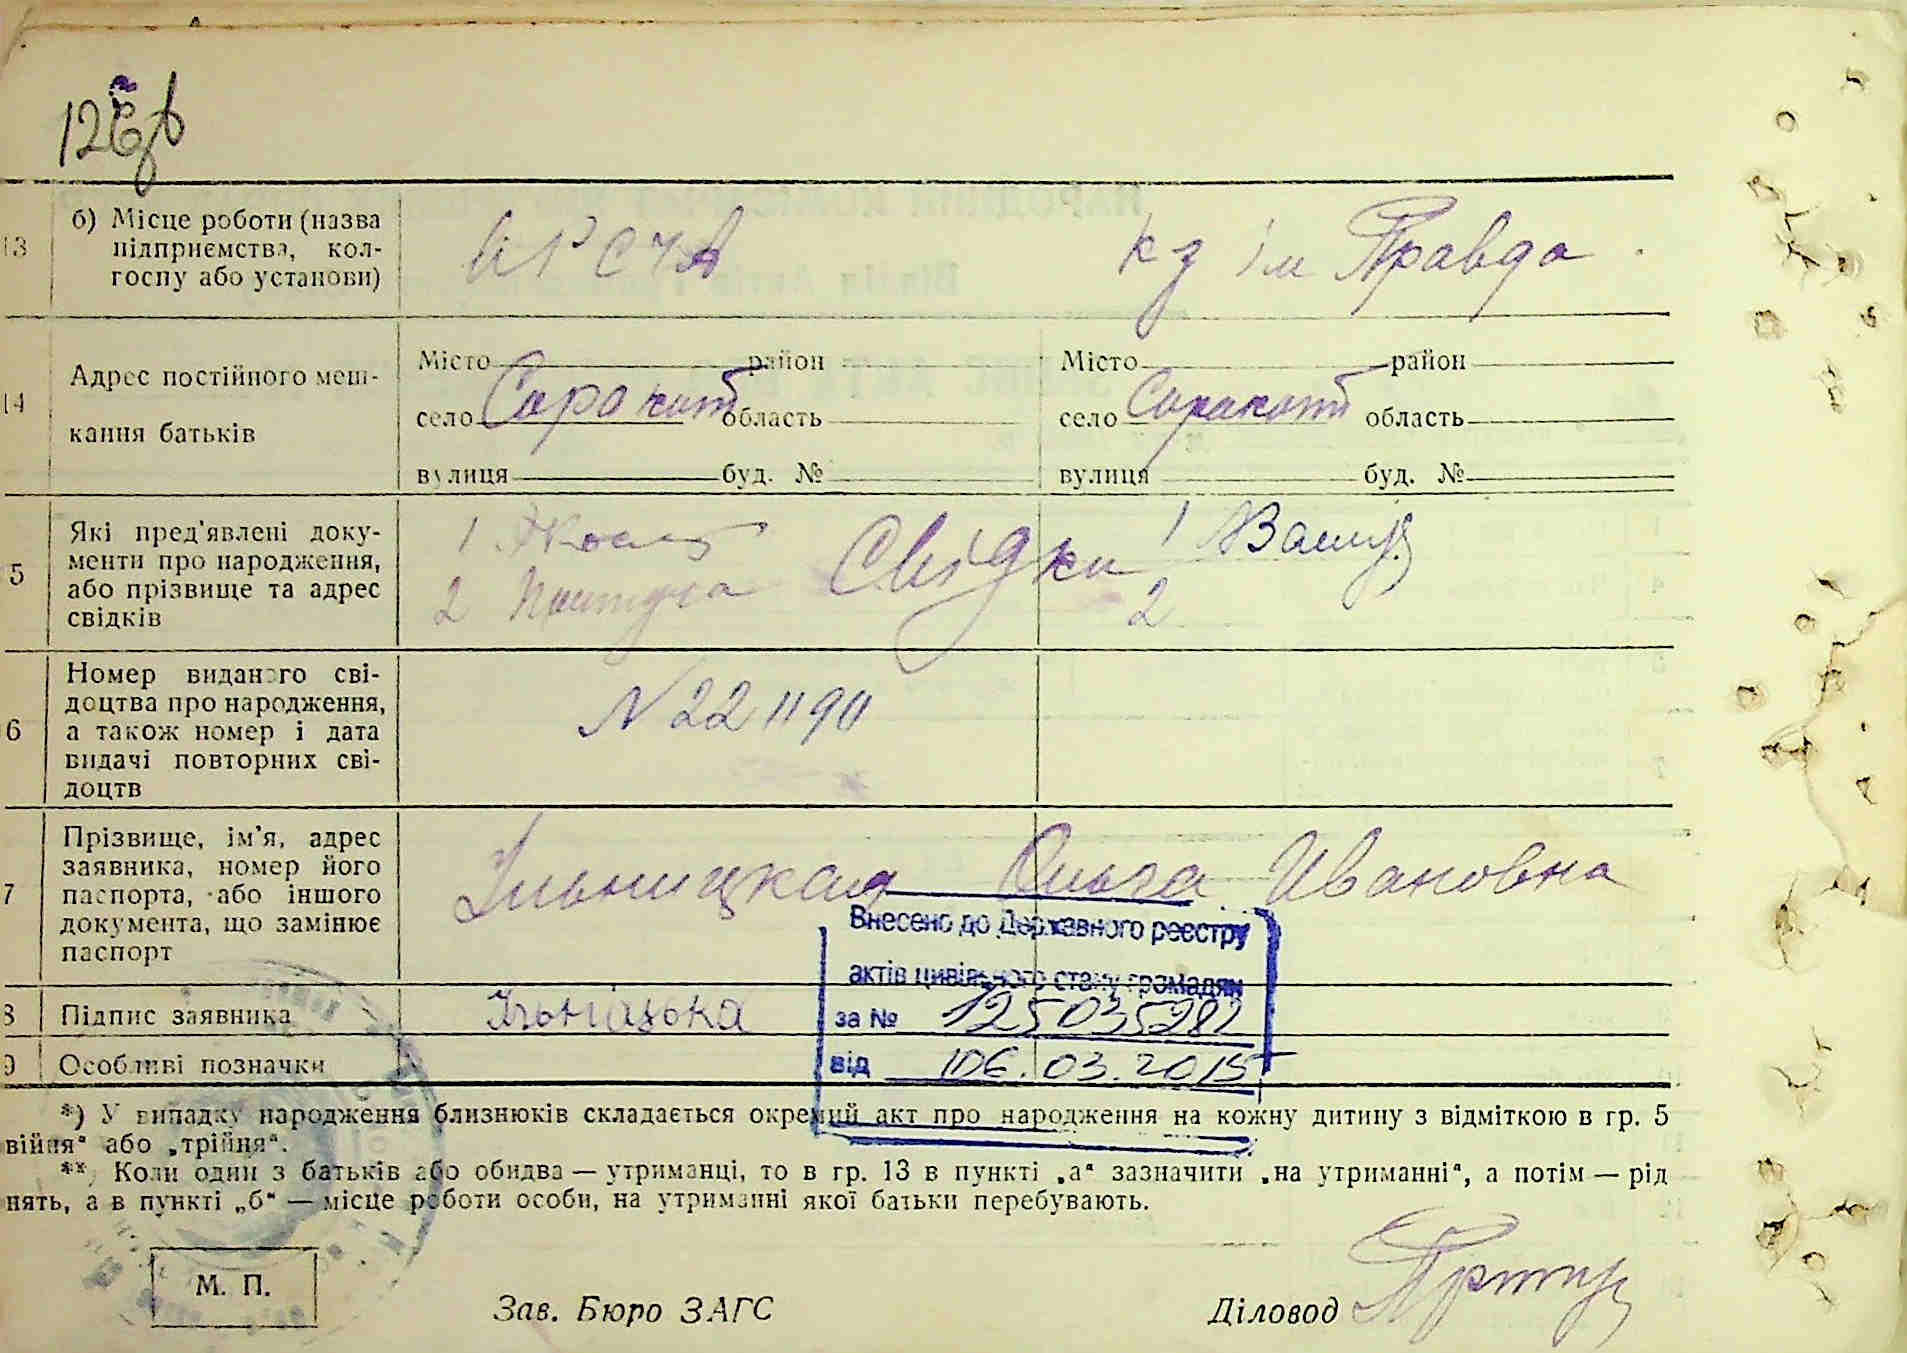 13
б) Місце роботи (назва
підприємства, кол-
госпу або установи)
РСЧА
кз ім Правда
14
Адрес постійного меш-
кання батьків
Місто район
село Сорокот область
вулиця буд. №
Місто район
село Сорокоти область
вулиця буд. №
5
Які пред'явлені доку-
менти про народження,
або прізвище та адрес
свідків
1
2
Свідки
1
2
6
Номер виданого сві-
доцтва про народження,
а також номер і дата
видачі повторних сві-
доцтв
N 221190
7
Прізвище, ім'я, адрес
заявника, номер його
паспорта, або іншого
документа, що замінює
паспорт
Ильницкая Ольга Ивановна
Внесено до Державного реєстру
актів цивільного стану громадян
за № 125035282
від 06.03.2015
8
Підпис заявника
Ільніцька
9
Особливі позначки
*) У випадку народження близнюків складається окремий акт про народження на кожну дитину з відміткою в гр. 5
війня" або „трійня".
**) Коли один з батьків або обидва — утриманці, то в гр. 13 в пункті „а" зазначити „на утриманні", а потім — рід
нять, а в пункті „б" — місце роботи особи, на утриманні якої батьки перебувають.
М. П.
Зав. Бюро ЗАГС
Діловод